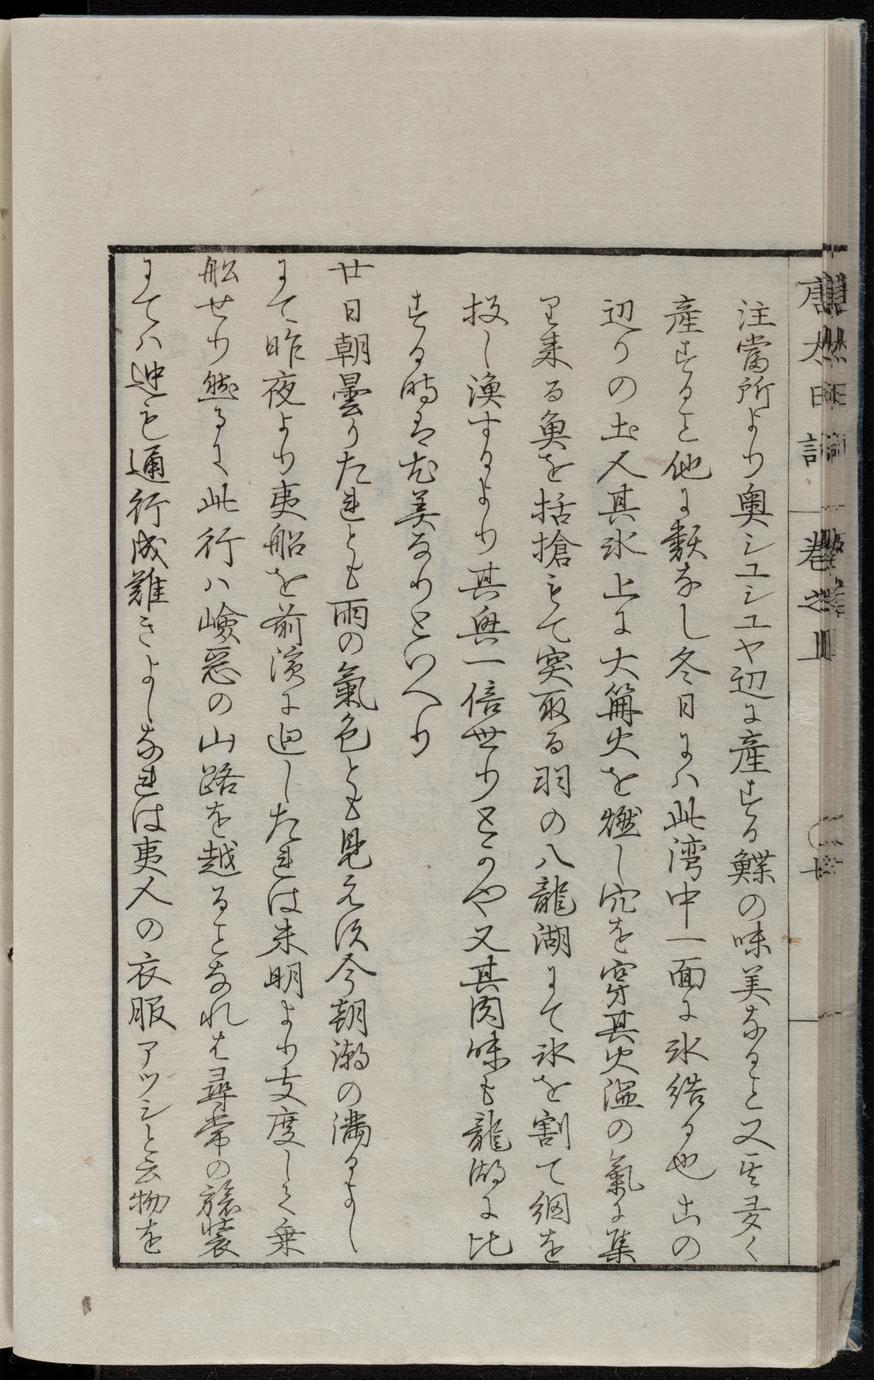 唐太日記 卷之上
注當所より奥シユシユヤ辺に産する鰈の味美なること又其多く
産すること他に類なし冬日には此湾中一面に氷結る也出の
辺りの土人其氷上に大篝火を燃し穴を穿其火温の氣に集
り来る魚を括搶もて突取る羽の八龍湖にて氷を割て網を
投し漁するより其興一倍せりとかや又其肉味も龍湖に比
する時は尤美なりといへり
廿日朝曇りたれとも雨の氣色とも見えす今朝潮の満るよし
にて昨夜より夷船を前濱に迴したれは未明より支度して乗
船せり然るに此行ハ嶮惡の山路を越ることなれは尋常の旅装
にてハ迚も通行成難きよしなれは夷人の衣服アツシと云物を